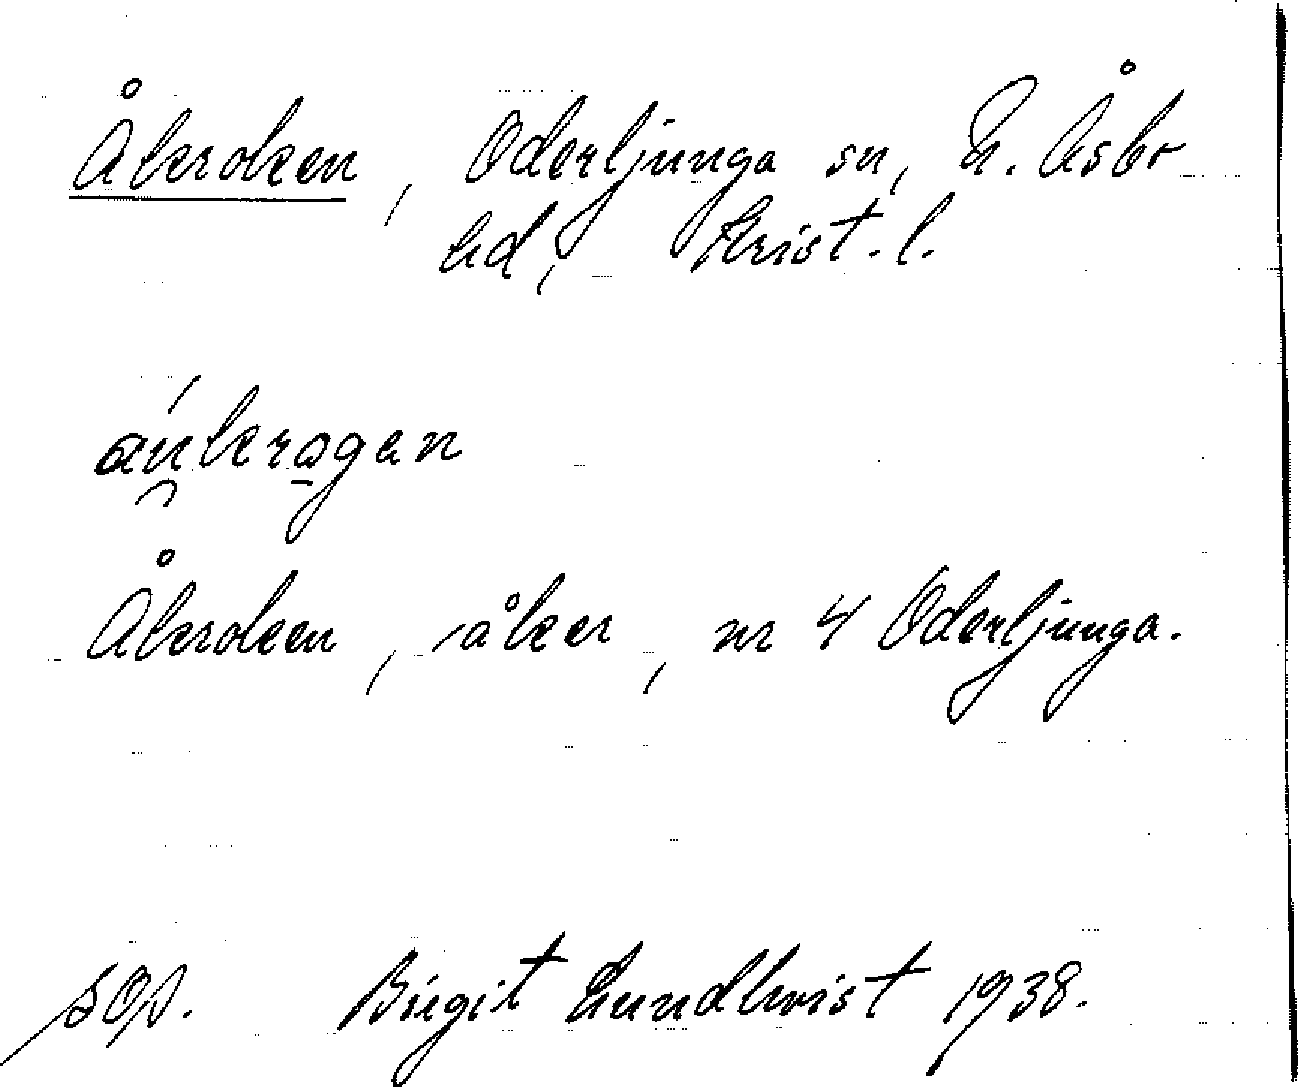 Åkeroken, Oderljunga sn, N. Åsbo
hd, Krist. l.
áu̯kero̱gen
Åkeroken, åker, nr 4 Oderljunga.
Birgit Lundkvist 1938.